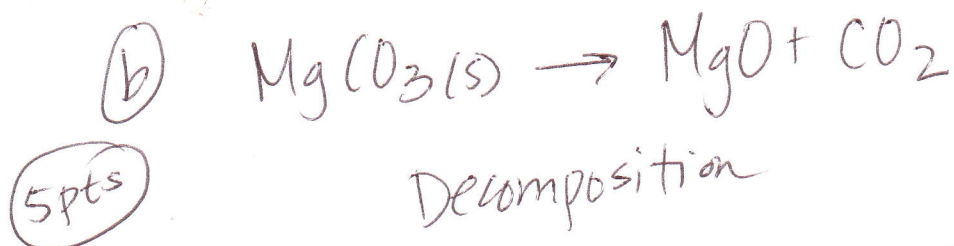 b MgCO3(s) → MgO + CO2
5pts Decomposition